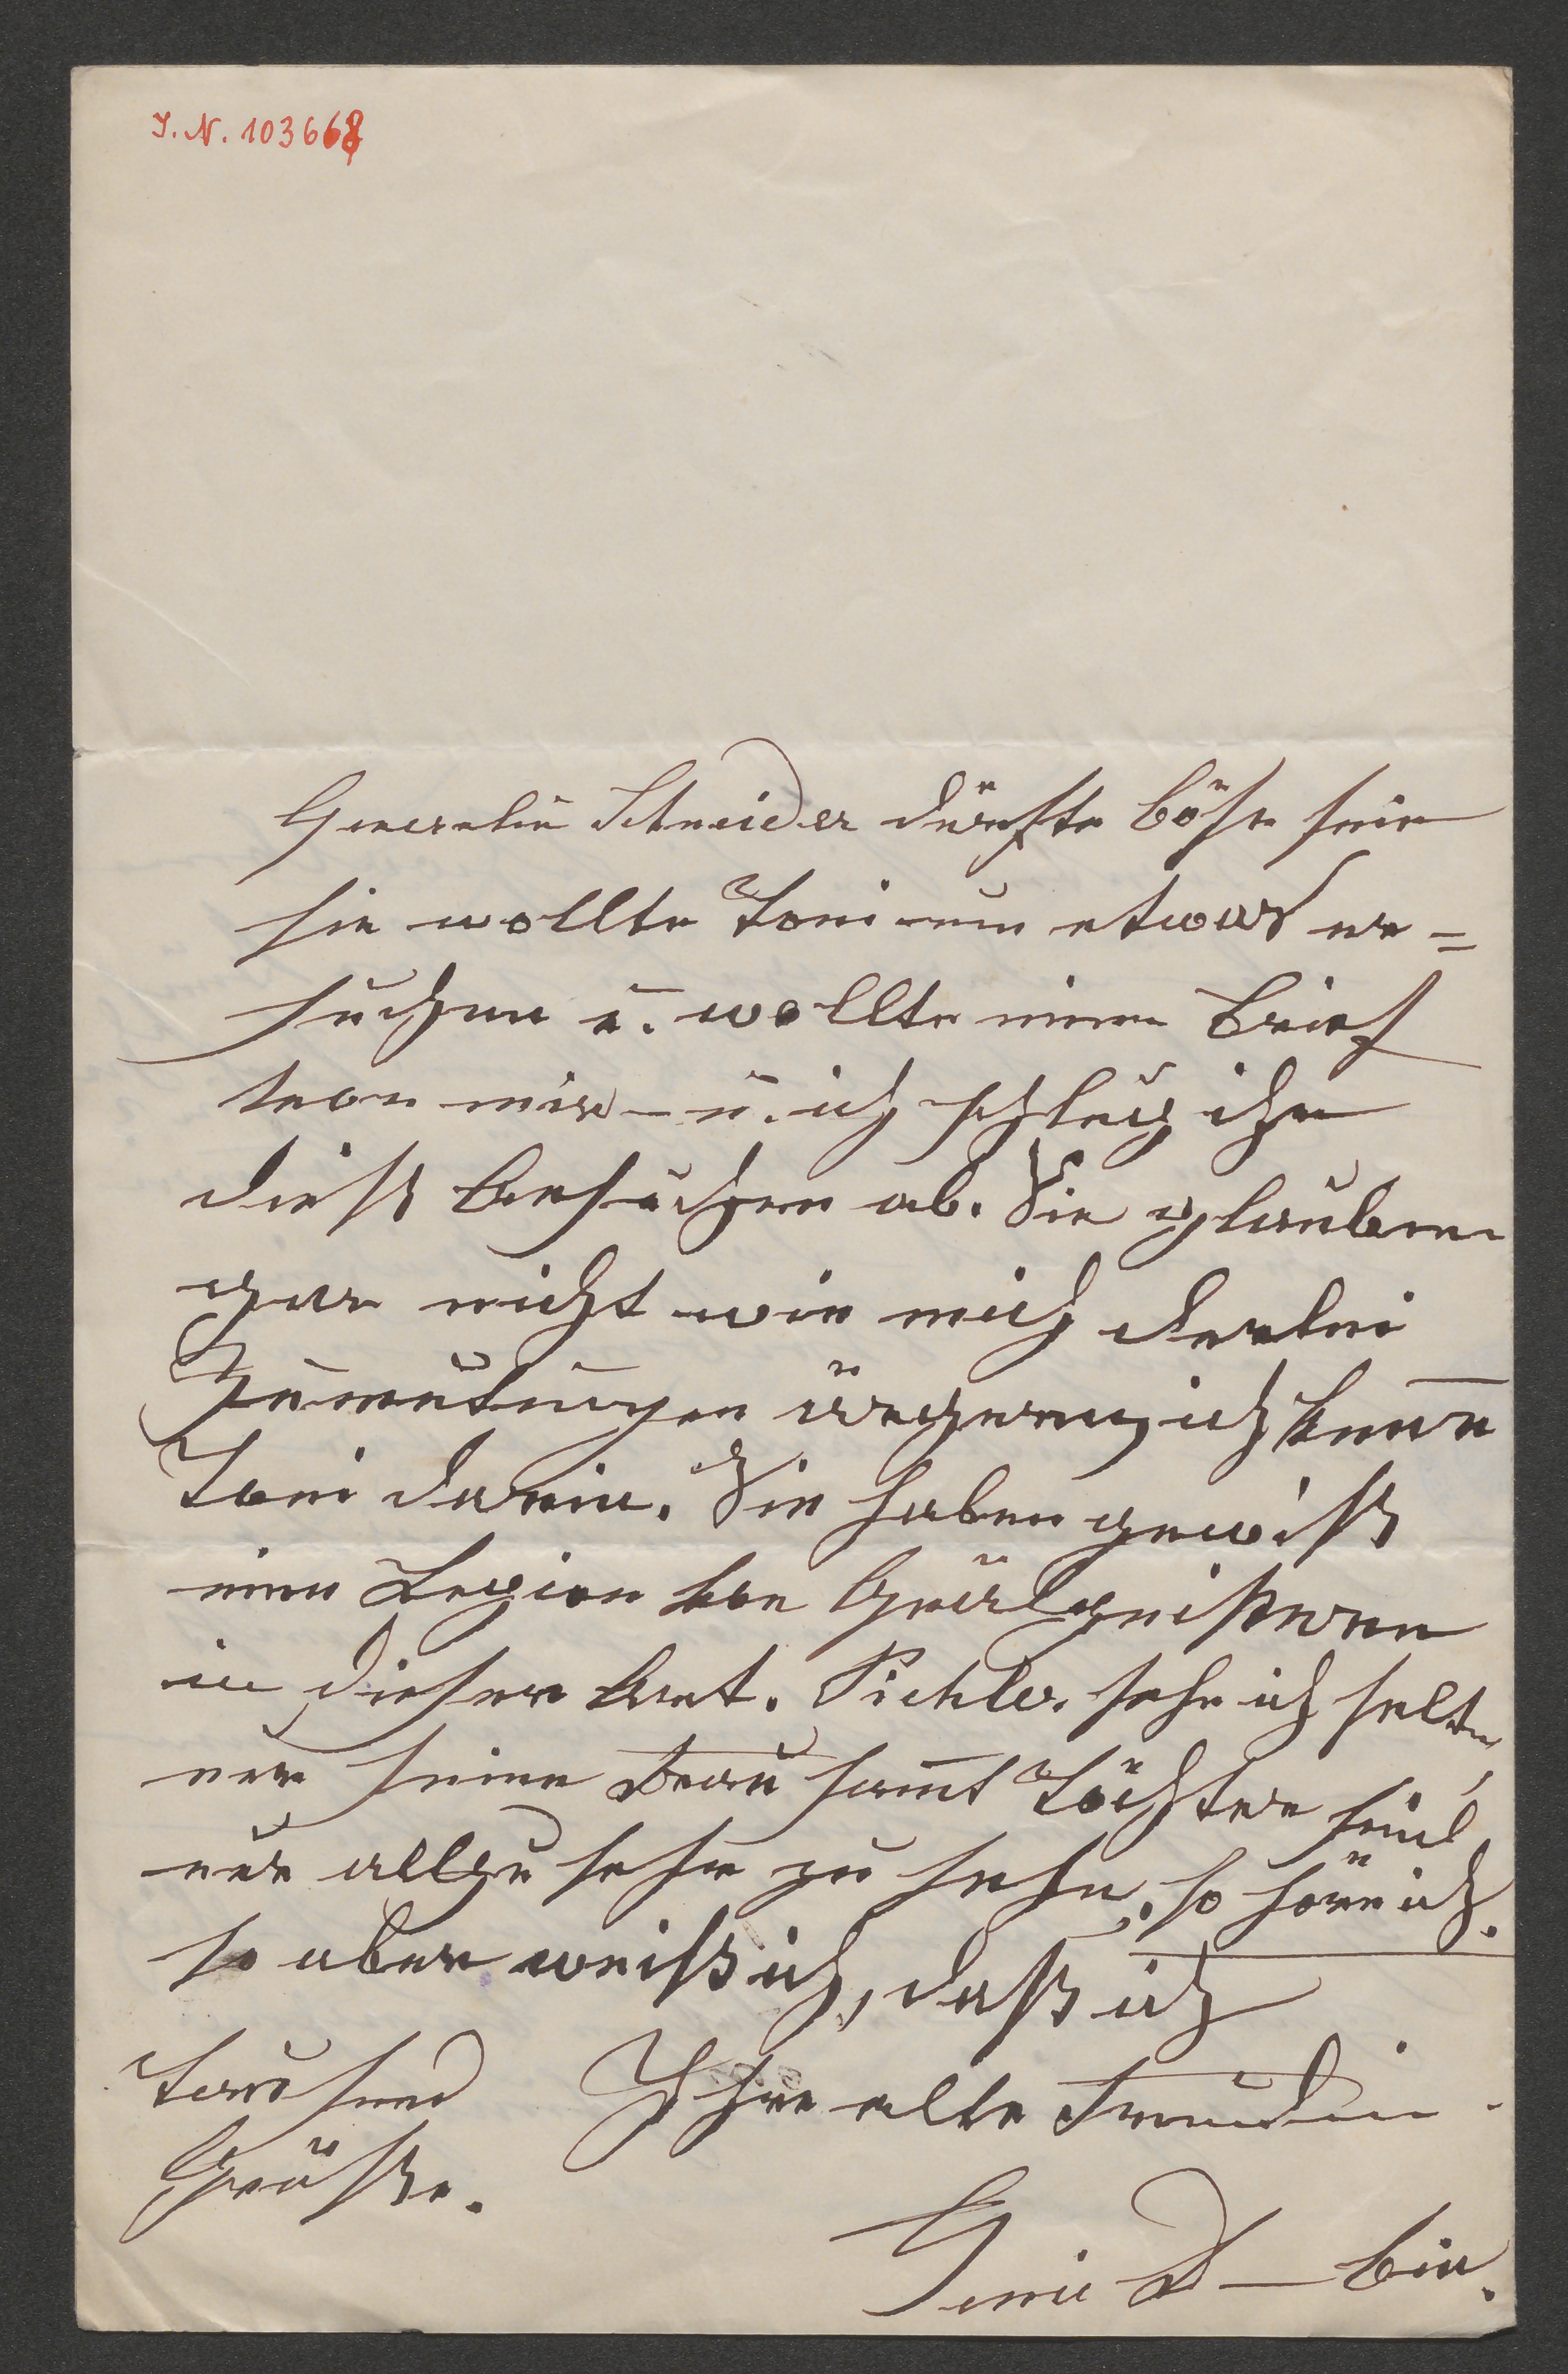 I. N. 103668
Generalin Schneider dürfte böse sein
sie wollte Toni um etwas er=
suchen u. wollte einen Brief
von mir – u. ich schlug ihr
dieß Ansuchen ab. Sie glauben
gar nicht wie mich derlei
Zumutungen ärgern, ich kenne
Toni darin. Sie haben gewiß
eine Legion von
in dieser Art. Pichler sehe ich selten,
nur seine Frau samt Töchter sind
nur allzu sehr zu sehen, so höre ich.
so aber weiß ich, daß ich
Tausend Ihre alte Freundin
Grüße.
bin.